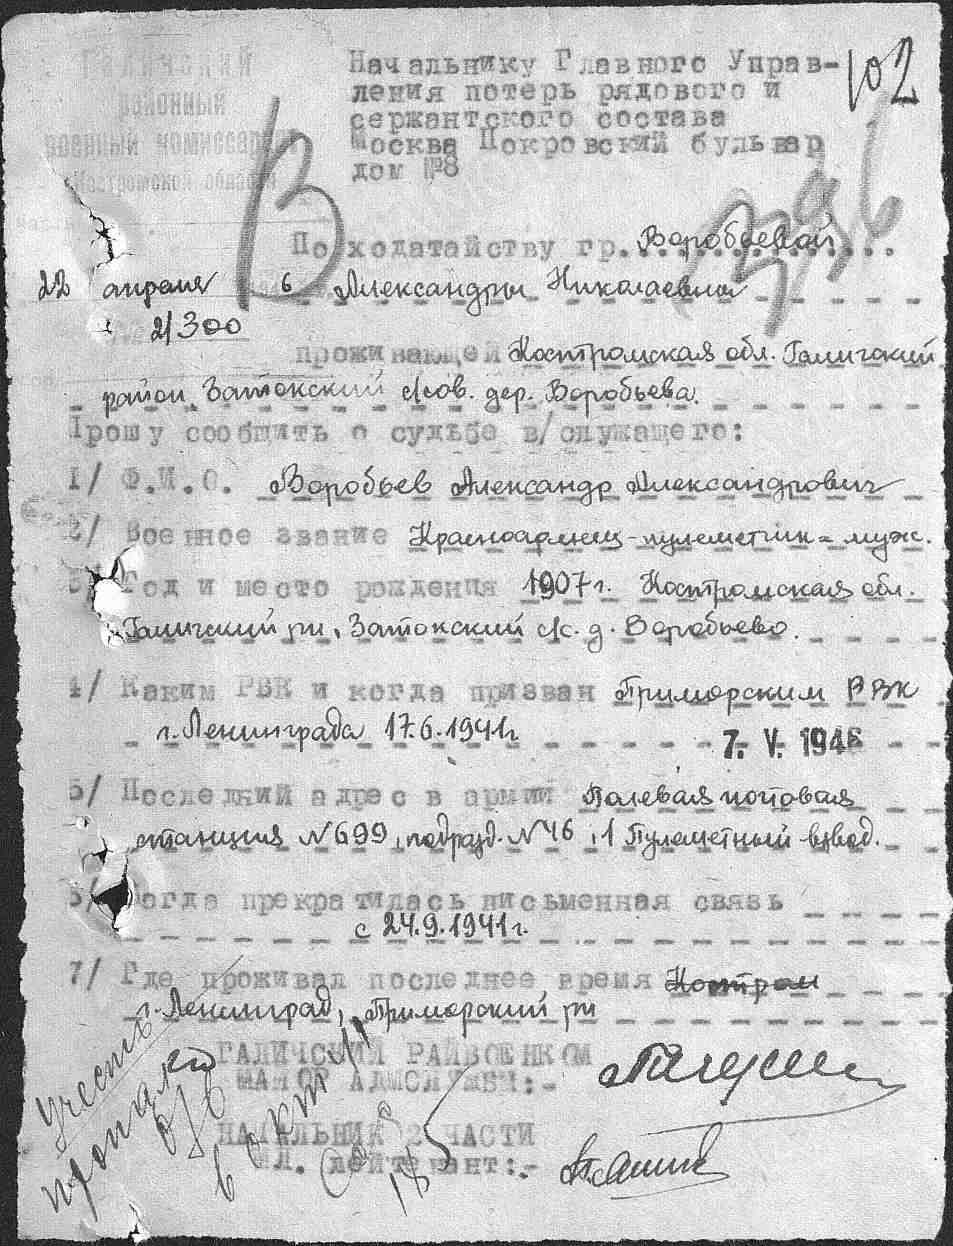 Галичский
районный
военный комиссариат
Костромской области
Начальнику Главного Управ-
ления потерь рядового и
сержантского состава
Москва Покровский бульвар
дом №8
102
В
396
22 апреля 1946
2/300
По ходатайству гр. Воробьевой
Александры Николаевны
проживающей Костромская обл. Галичский
район, Затокский с/сов. дер. Воробьева.
Прошу сообщить о судьбе в/служащего:
1/ Ф.И.О. Воробьев Александр Александрович
2/ Военное звание Красноармеец-пулеметчик = муж.
3/ Год и место рождения 1907 г. Костромская обл.
Галичский р-н, Затокский с/с. д. Воробьево.
4/ Каким РВК и когда призван Приморским РВК
г. Ленинграда 17.6.1941 г.
7. V. 1946
5/ Последний адрес в армии Полевая почтовая
станция №699, подразд. №46, 1 Пулеметный взвод.
6/ Когда прекратилась письменная связь
с 24.9.1941 г.
7/ Где проживал последнее время Костром
г. Ленинград, Приморский р-н
ГАЛИЧСКИЙ РАЙВОЕНКОМ
МАЙОР АДМСЛУЖБЫ:-
НАЧАЛЬНИК 2 ЧАСТИ
МЛ. ЛЕЙТЕНАНТ:-
Учесть
пропал
б/в
в окт 41